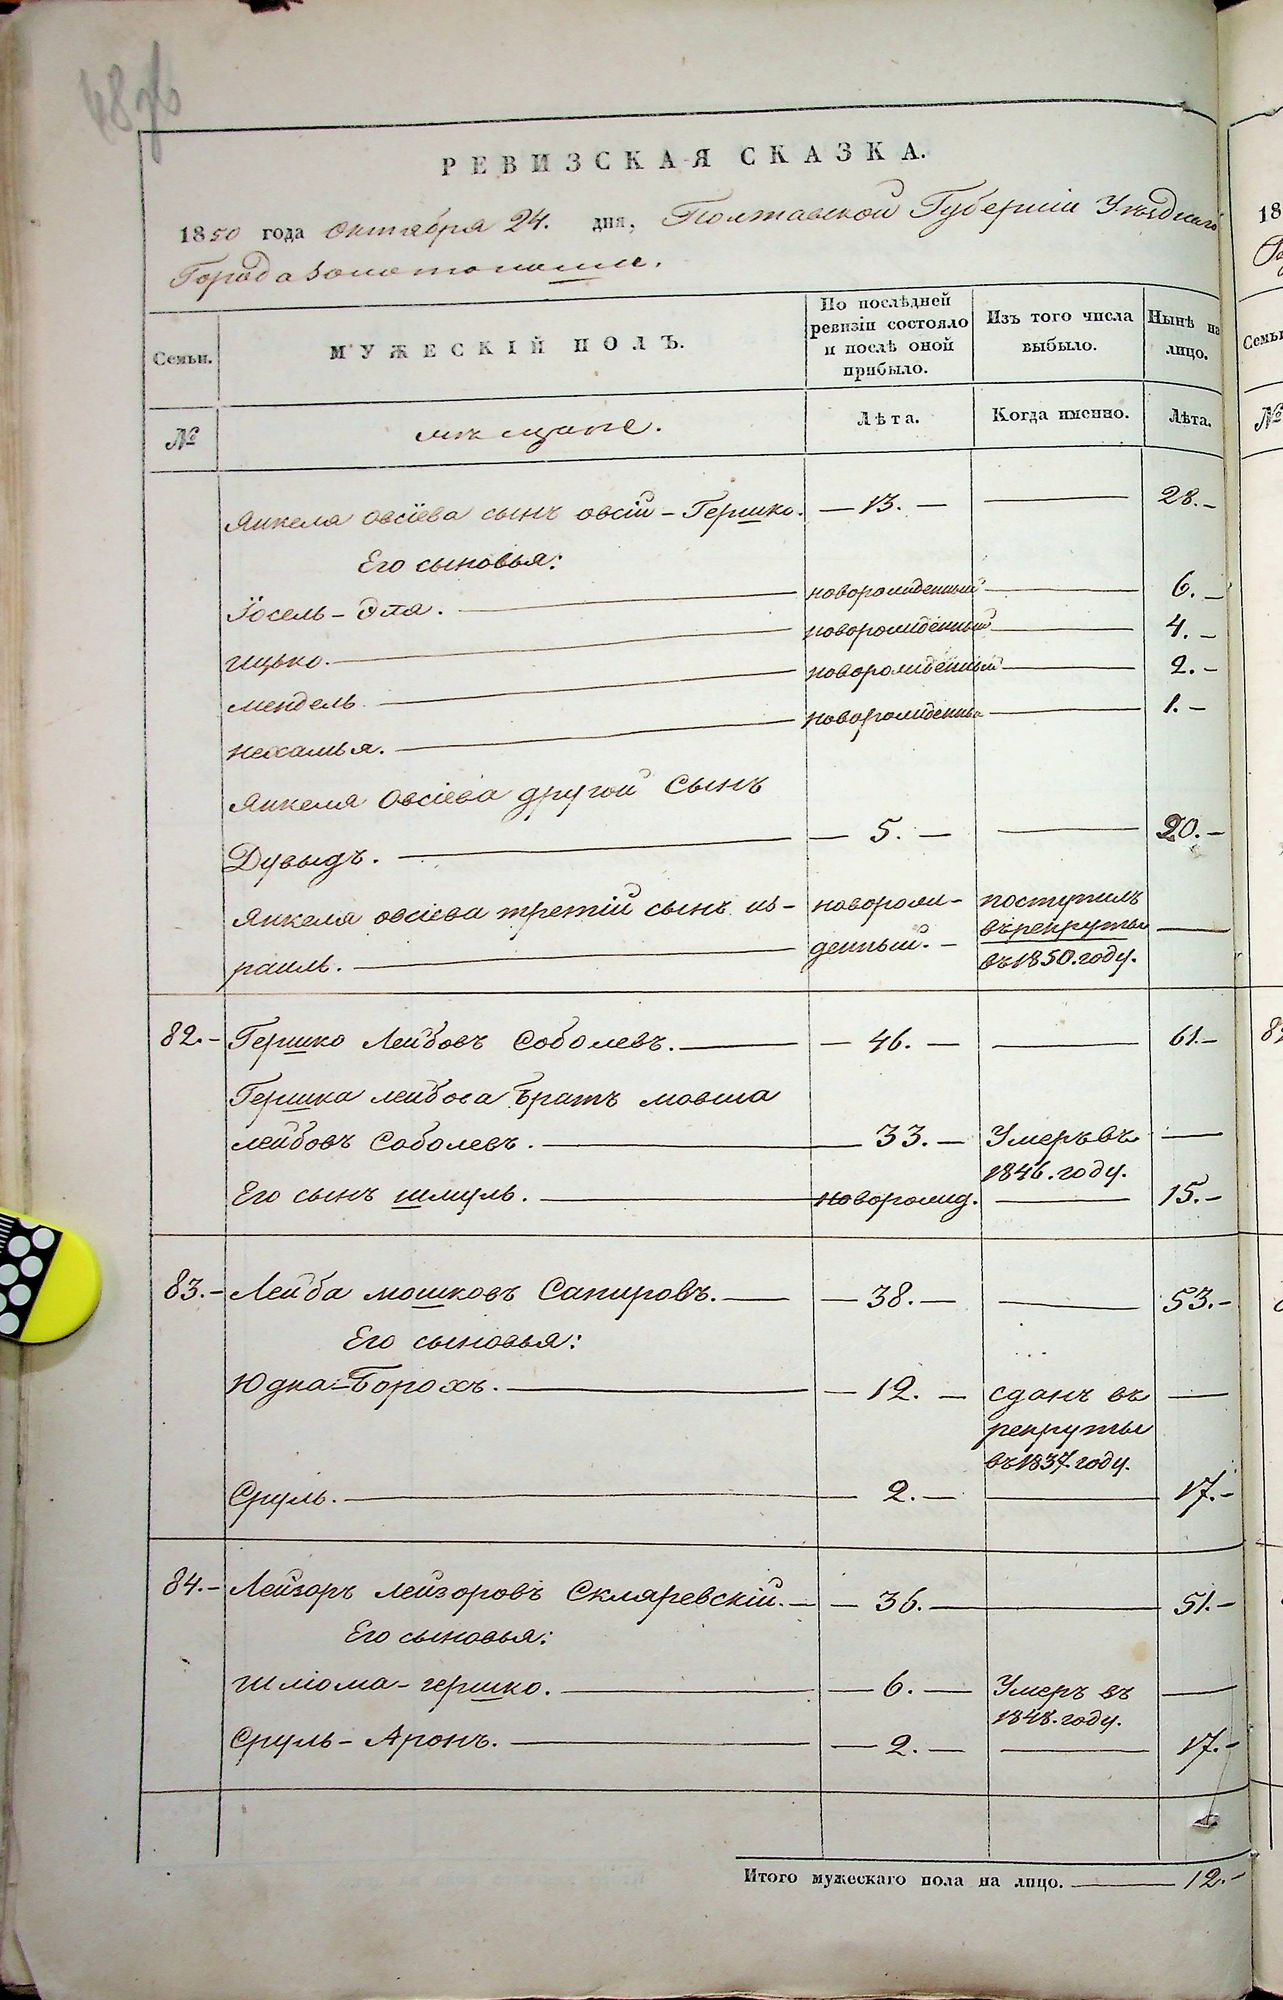 48 об
РЕВИЗСКАЯ СКАЗКА.
1850 года Октября 24. дня, Полтавской Губернiи Уѣзднаго
Города Золотоноши.
Семьи.
МУЖЕСКIЙ ПОЛЪ.
По послѣдней ревизiи состояло и послѣ оной прибыло.
Изъ того числа выбыло.
Нынѣ на лицо.
№
мѣщане.
Лѣта.
Когда именно.
Лѣта.
Янкеля Овсiева сынъ овсiй - Гершко. — 13. — — 28. —
Его сыновья:
Iосель - для. — новорожденный — 6. —
ицько. — новорожденный — 4. —
мендель — новорожденный — 2. —
нехамья. — новорожденны — 1. —
Янкеля Овсiева другой Сынъ
Дувыдъ. — 5. — — 20. —
Янкеля овсiева третiй сынъ из- новорож- поступилъ
въ рекруты —
раиль. — денный. — въ 1850. году.
82. - Гершко Лейбовъ Соболевъ. — 46. — — 61. —
Гершка лейбова братъ мовша
лейбовъ Соболевъ. — 33. — Умеръ въ —
1846. году.
Его сынъ шмуль. — новорожд. — 15. —
83. - Лейба мошковъ Сапировъ. — 38. — — 53. —
Его сыновья:
Юдка-Борохъ. — 12. — сданъ въ —
рекруты
въ 1837 году.
Сруль. — 2. — — 17. —
84. - Лейзоръ лейзоровъ Скляревскiй. — 36. — — 51. —
Его сыновья:
шлiома - гершко. — 6. — Умеръ въ —
1848. году.
Сруль - Аронъ. — 2. — — 17. —
Итого мужескаго пола на лицо. — 12. —